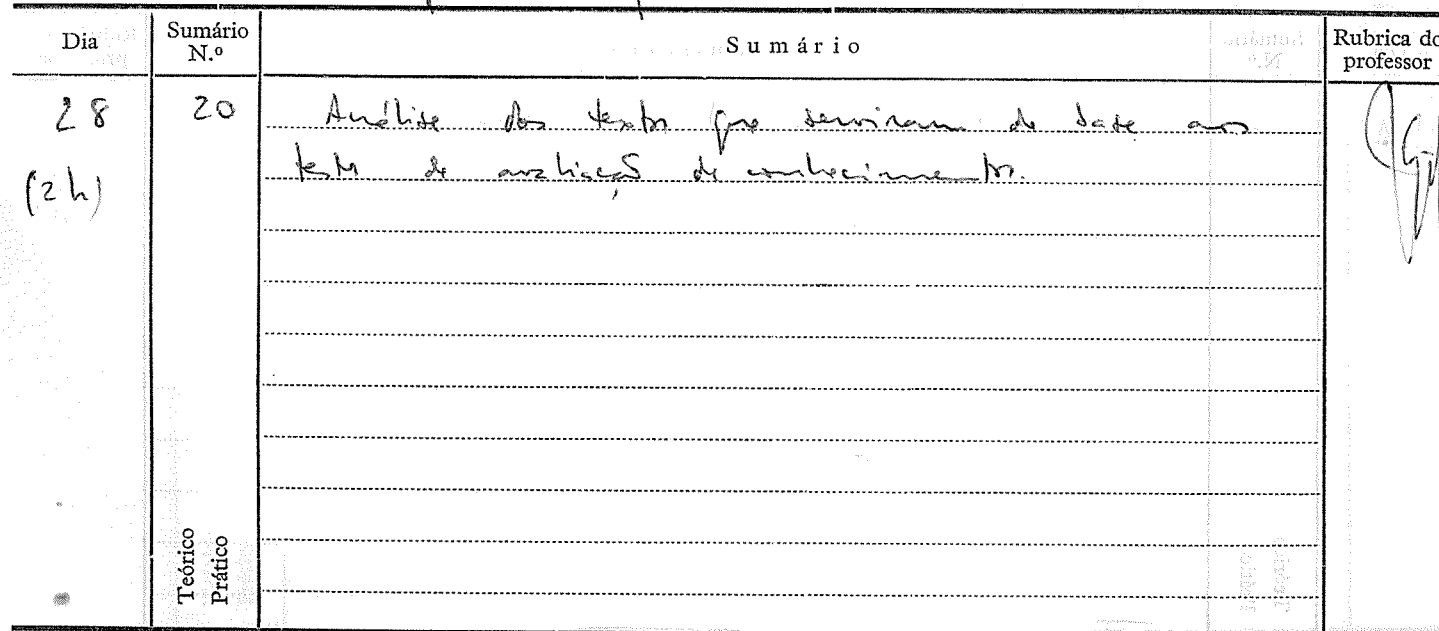 Dia
Sumário N.º
Sumário
Rubrica do professor
28
20
Análise dos textos que serviram de base aos
(2 h)
teste de avaliação de conhecimentos.
Teórico
Prático